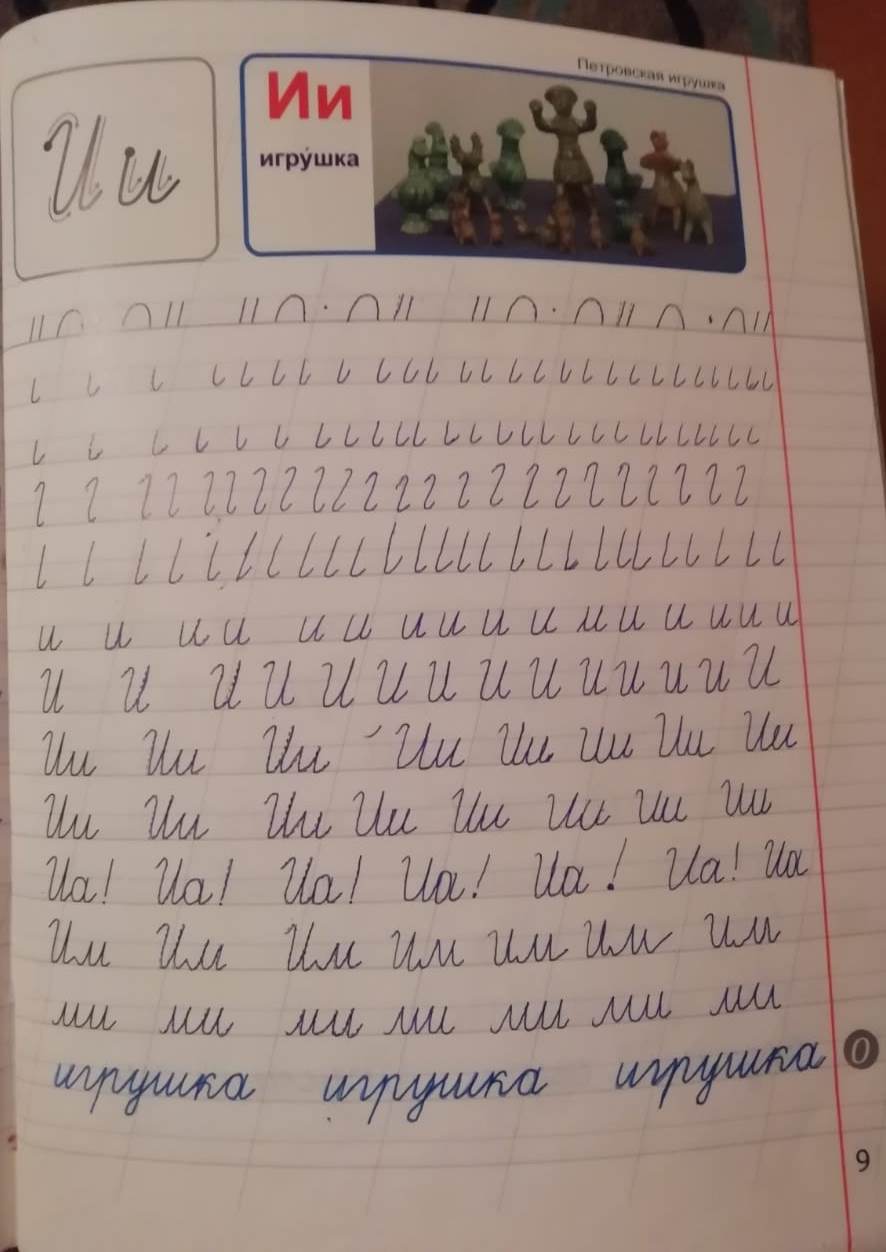 Петровская игрушка
Ии
Ии
игру́шка
и и и и и и и и и и и и и и и и
И И И И И И И И И И И И И И
Ии Ии Ии Ии Ии Ии Ии Ии
Ии Ии Ии Ии Ии Ии Ии Ии
Иа! Иа! Иа! Иа! Иа! Иа! Иа
Им Им Им Им Им Им Им
ми ми ми ми ми ми ми
игрушка игрушка игрушка
О
9